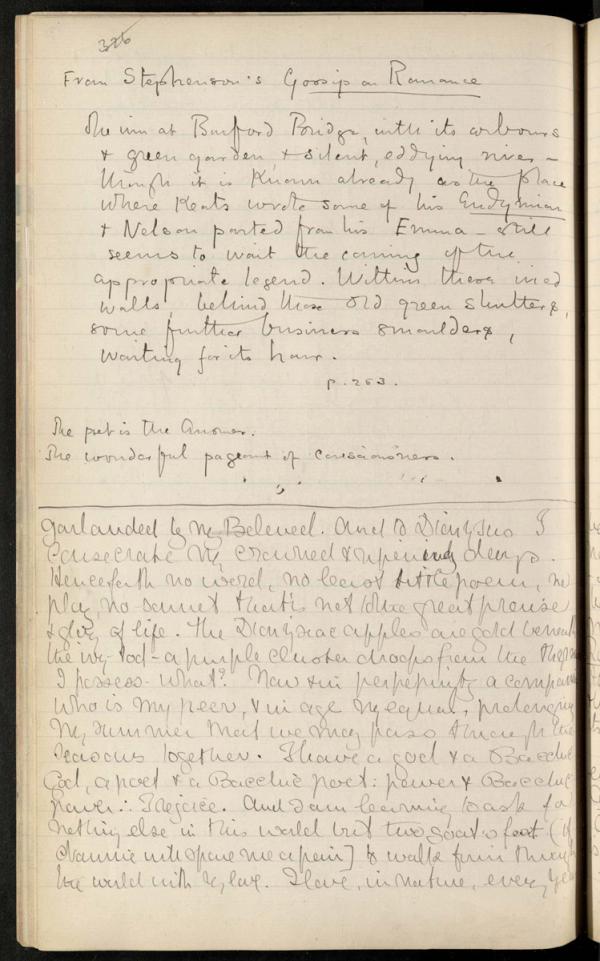 326
From Stephenson's Gossip on Romance
The inn at Burford Bridge, with its arbours
& green garden, & silent, eddying river –
though it is known already as the place
where Keats wrote some of his Endymion
& Nelson parted from his Emma – still
seems to wait the coming of the
appropriate legend. Within these ivied
walls, behind these old green shutters,
some further business smoulders,
waiting for its hour.
p. 253.
The poet is the Answer.
The wonderful pageant of consciousness.
garlanded by my Beloved. And to Dionysus I
consecrate my crowned & ripening days.
Henceforth no word, no least little poem, no
play, no sonnet that is not to the great praise
& glory of life. The Dionysiac apples are gold beneath
the ivy-tod – a purple cluster droops from the
I possess – what? Now & in perpetuity a companion
who is my peer, & in age my equal, prolonging
my summer that we may pass through the
seasons together. I have a god & a Bacchic
God, a poet & a Bacchic poet: power & Bacchic
power ∴ I rejoice. And I am learning to ask for
nothing else in this world but two goat's feet (if
Channie will spare me a pair] to walk firm through
the world with
I love, in nature, every